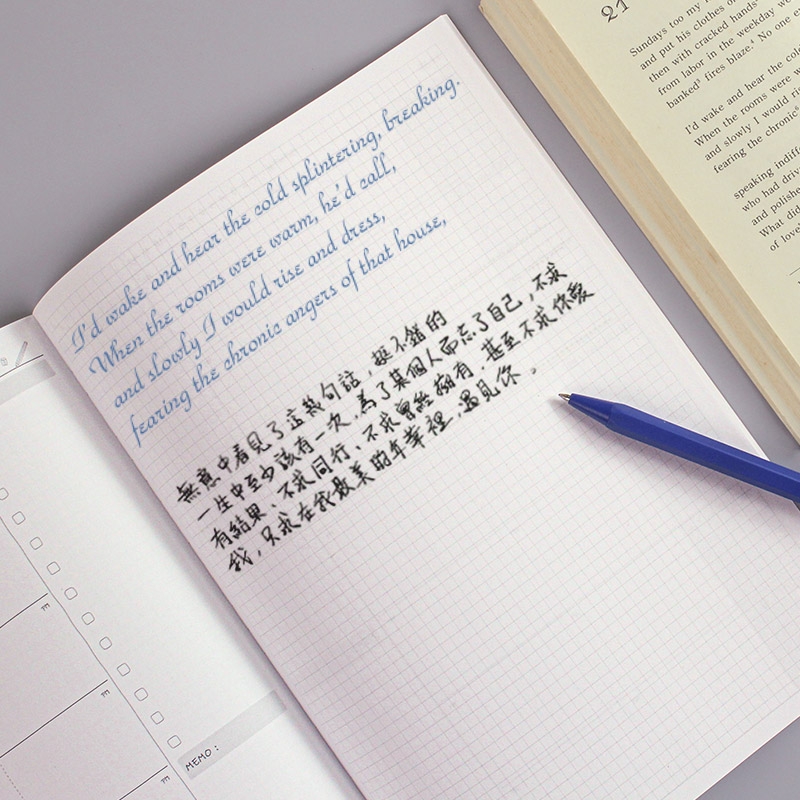 I'd wake and hear the cold splintering, breaking.
When the rooms were warm, he'd call,
and slowly I would rise and dress,
fearing the chronic angers of that house,
無意中看見了這幾句話，挺不錯的
一生中至少該有一次，為了某個人而忘了自己，不求
有結果、不求同行、不求曾經擁有，甚至不求你愛
我，只求在我最美的年華裡，遇見你。
MEMO：
21
Sundays too my
and put his clothes on
then with cracked hands
from labor in the weekday we
banked³ fires blaze.⁴ No one e
I'd wake and hear the col
When the rooms were w
and slowly I would ri
fearing the chronic⁵
speaking indiff
who had driv
and polishe
What did
of love